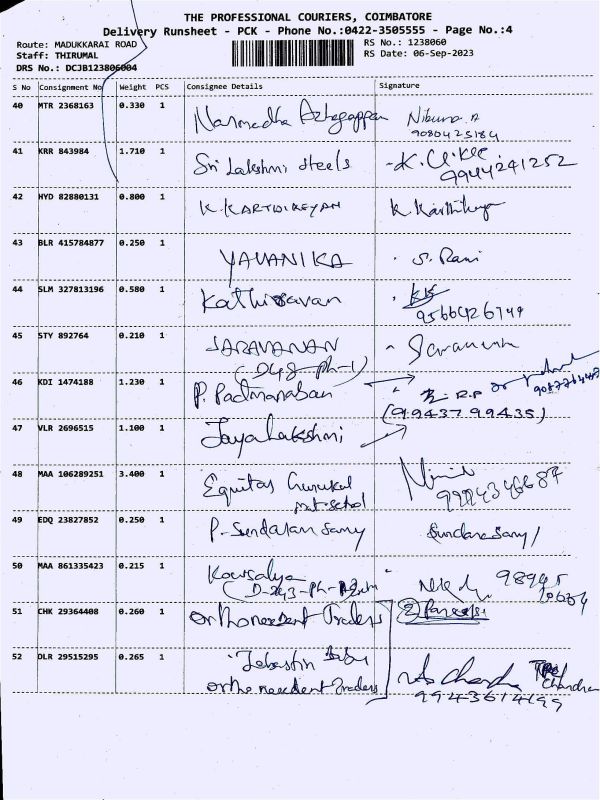 THE PROFESSIONAL COURIERS, COIMBATORE
Delivery Runsheet - PCK - Phone No.:0422-3505555 - Page No.:4
Route: MADUKKARAI ROAD RS No.: 1238060
Staff: THIRUMAL RS Date: 06-Sep-2023
DRS No.: DCJB123806004
S No Consignment No Weight PCS Consignee Details Signature
40 MTR 2368163 0.330 1 Narmedha Azhagappan
9080425184
41 KRR 843984 1.710 1 Sri Lakshmi steels
9944241252
42 HYD 82880131 0.800 1 K. KARTHIKEYAN K. Karthikeya
43 BLR 415784877 0.250 1 YAVANIKA S. Rani
44 SLM 327813196 0.580 1 Kathiravan
9566426749
45 STY 892764 0.210 1 SARAVANAN
(D48-Ph-1)
46 KDI 1474188 1.230 1 P. Padmanaban R.P or
(919437 99435)
47 VLR 2696515 1.100 1 Jayalakshmi
48 MAA 106289251 3.400 1 Equitas Gurukul
mat-school
49 EDQ 23827852 0.250 1 P-Sundaran Samy Sundarasamy
50 MAA 861335423 0.215 1 Kowsalya
51 CHK 29364408 0.260 1 Orthoneedent Traders
52 DLR 29515295 0.265 1 Jebastin Babu Chandra
Orthoneedent Traders 9943614199